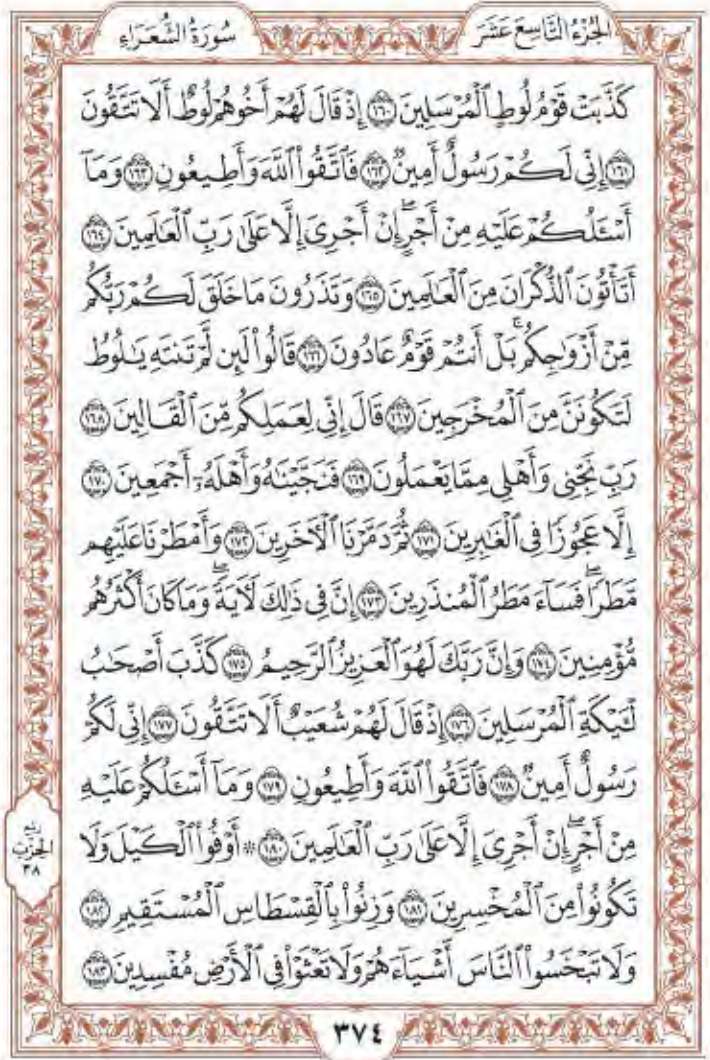 الجُزْءُ التَّاسِعَ عَشَرَ
سُورَةُ الشُّعَرَاءِ
كَذَّبَتْ قَوْمُ لُوطٍ ٱلْمُرْسَلِينَ ١٦٠ إِذْ قَالَ لَهُمْ أَخُوهُمْ لُوطٌ أَلَا تَتَّقُونَ
١٦١ إِنِّى لَكُمْ رَسُولٌ أَمِينٌ ١٦٢ فَٱتَّقُوا۟ ٱللَّهَ وَأَطِيعُونِ ١٦٣ وَمَآ
أَسْـَٔلُكُمْ عَلَيْهِ مِنْ أَجْرٍ ۖ إِنْ أَجْرِىَ إِلَّا عَلَىٰ رَبِّ ٱلْعَـٰلَمِينَ ١٦٤
أَتَأْتُونَ ٱلذُّكْرَانَ مِنَ ٱلْعَـٰلَمِينَ ١٦٥ وَتَذَرُونَ مَا خَلَقَ لَكُمْ رَبُّكُم
مِّنْ أَزْوَٰجِكُم ۚ بَلْ أَنتُمْ قَوْمٌ عَادُونَ ١٦٦ قَالُوا۟ لَئِن لَّمْ تَنتَهِ يَـٰلُوطُ
لَتَكُونَنَّ مِنَ ٱلْمُخْرَجِينَ ١٦٧ قَالَ إِنِّى لِعَمَلِكُم مِّنَ ٱلْقَالِينَ ١٦٨
رَبِّ نَجِّنِى وَأَهْلِى مِمَّا يَعْمَلُونَ ١٦٩ فَنَجَّيْنَـٰهُ وَأَهْلَهُۥٓ أَجْمَعِينَ ١٧٠
إِلَّا عَجُوزًا فِى ٱلْغَـٰبِرِينَ ١٧١ ثُمَّ دَمَّرْنَا ٱلْـَٔاخَرِينَ ١٧٢ وَأَمْطَرْنَا عَلَيْهِم
مَّطَرًا ۖ فَسَآءَ مَطَرُ ٱلْمُنذَرِينَ ١٧٣ إِنَّ فِى ذَٰلِكَ لَـَٔايَةً ۖ وَمَا كَانَ أَكْثَرُهُم
مُّؤْمِنِينَ ١٧٤ وَإِنَّ رَبَّكَ لَهُوَ ٱلْعَزِيزُ ٱلرَّحِيمُ ١٧٥ كَذَّبَ أَصْحَـٰبُ
لْـَٔيْكَةِ ٱلْمُرْسَلِينَ ١٧٦ إِذْ قَالَ لَهُمْ شُعَيْبٌ أَلَا تَتَّقُونَ ١٧٧ إِنِّى لَكُمْ
رَسُولٌ أَمِينٌ ١٧٨ فَٱتَّقُوا۟ ٱللَّهَ وَأَطِيعُونِ ١٧٩ وَمَآ أَسْـَٔلُكُمْ عَلَيْهِ
مِنْ أَجْرٍ ۖ إِنْ أَجْرِىَ إِلَّا عَلَىٰ رَبِّ ٱلْعَـٰلَمِينَ ١٨٠ ۞ أَوْفُوا۟ ٱلْكَيْلَ وَلَا
تَكُونُوا۟ مِنَ ٱلْمُخْسِرِينَ ١٨١ وَزِنُوا۟ بِٱلْقِسْطَاسِ ٱلْمُسْتَقِيمِ ١٨٢
وَلَا تَبْخَسُوا۟ ٱلنَّاسَ أَشْيَآءَهُمْ وَلَا تَعْثَوْا۟ فِى ٱلْأَرْضِ مُفْسِدِينَ ١٨٣
الحِزْبِ
٣٨
٣٧٤